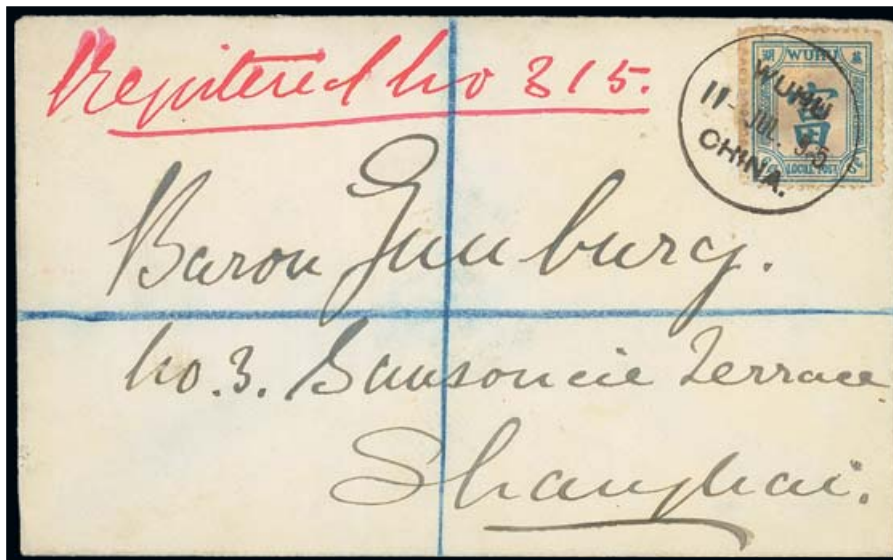 Registered No 315.
WUHU
WUHU
11-JUL.95
CHINA.
LOCAL POST
Baron Gunzburg.
No.3. Sansoucie Terrace
Shanghai.